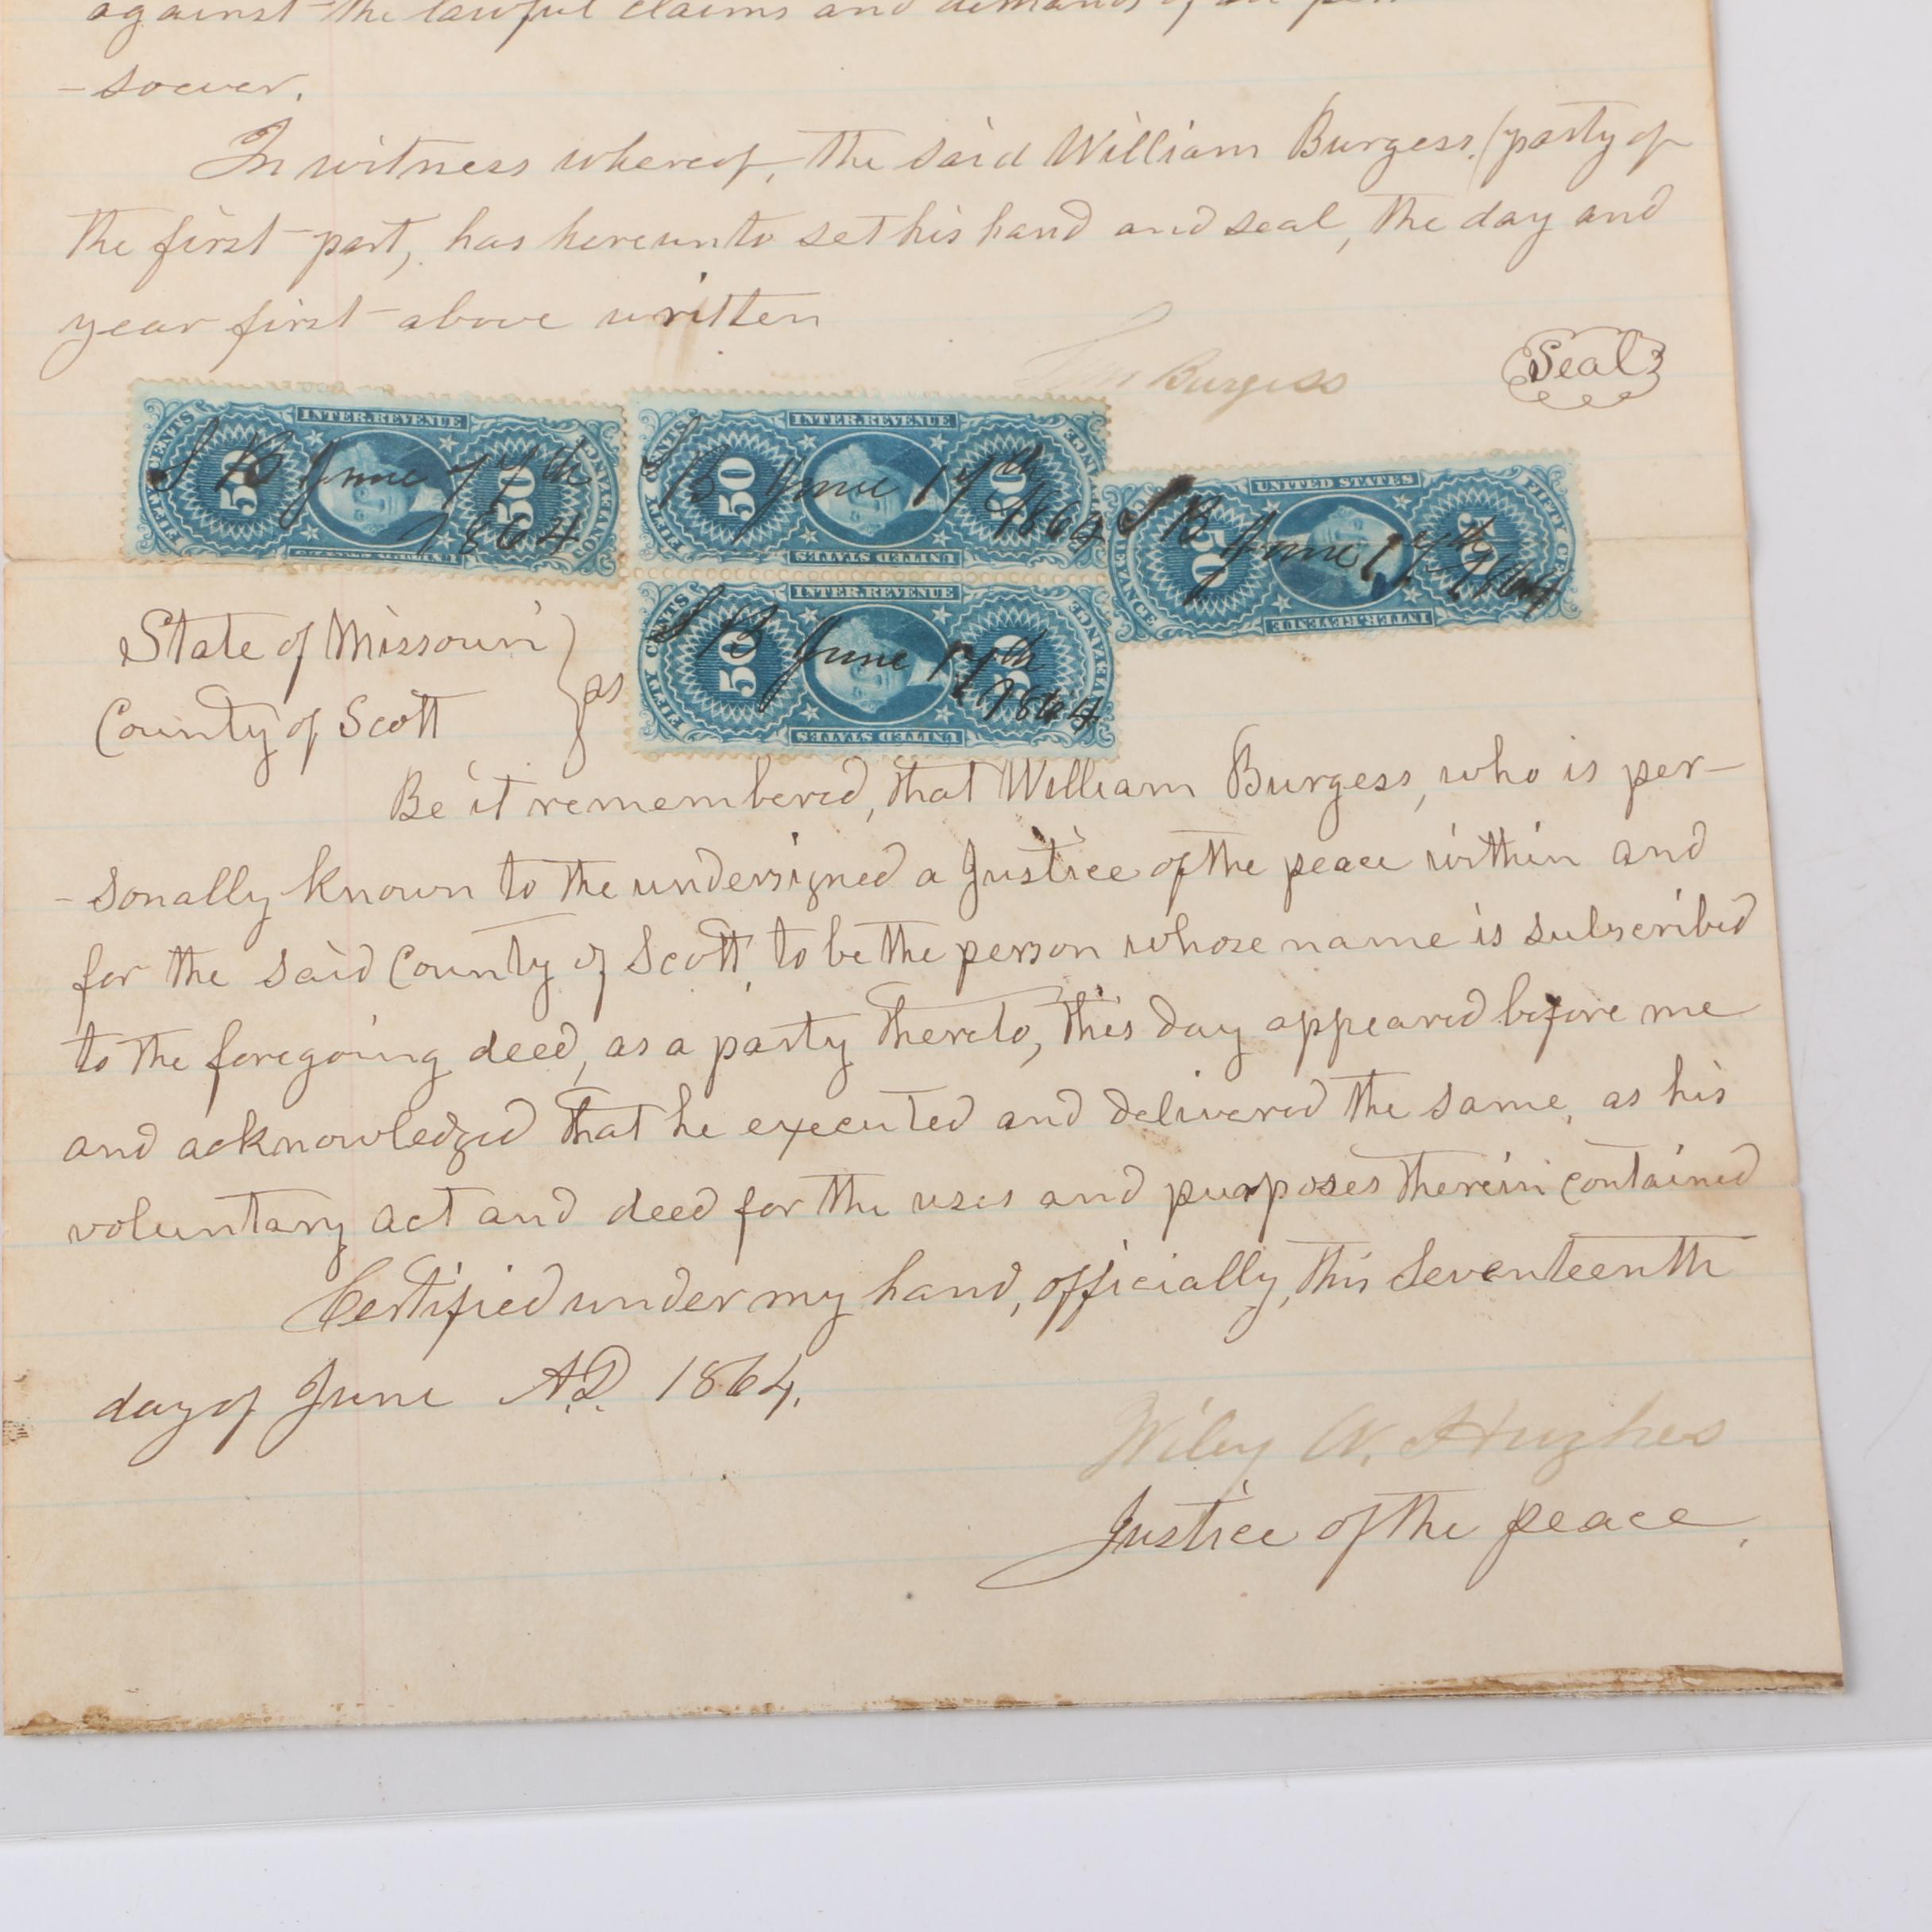 against the lawful claims and demands of all
-soever.
In witness whereof, the said William Burgess, (party of
the first part, has hereunto set his hand and seal, the day and
year first above written
Wm Burgess
Seal
INTER.REVENUE
FIFTY CENTS
50
50
S B June 17th
1864
INTER.REVENUE
FIFTY CENTS
50
50
S B June 17th
1864
UNITED STATES
UNITED STATES
FIFTY CENTS
50
50
S B June 17th
1864
INTER.REVENUE
INTER.REVENUE
FIFTY CENTS
50
50
S B June 17th
1864
UNITED STATES
State of Missouri
County of Scott } ss
Be it remembered, that William Burgess, who is per-
-sonally known to the undersigned a Justice of the peace within and
for the said County of Scott, to be the person whose name is subscribed
to the foregoing deed, as a party thereto, this day appeared before me
and acknowledged that he executed and delivered the same, as his
voluntary act and deed for the uses and purposes therein contained
Certified under my hand, officially, this Seventeenth
day of June A.D. 1864.
Wiley W. Hughes
Justice of the peace.